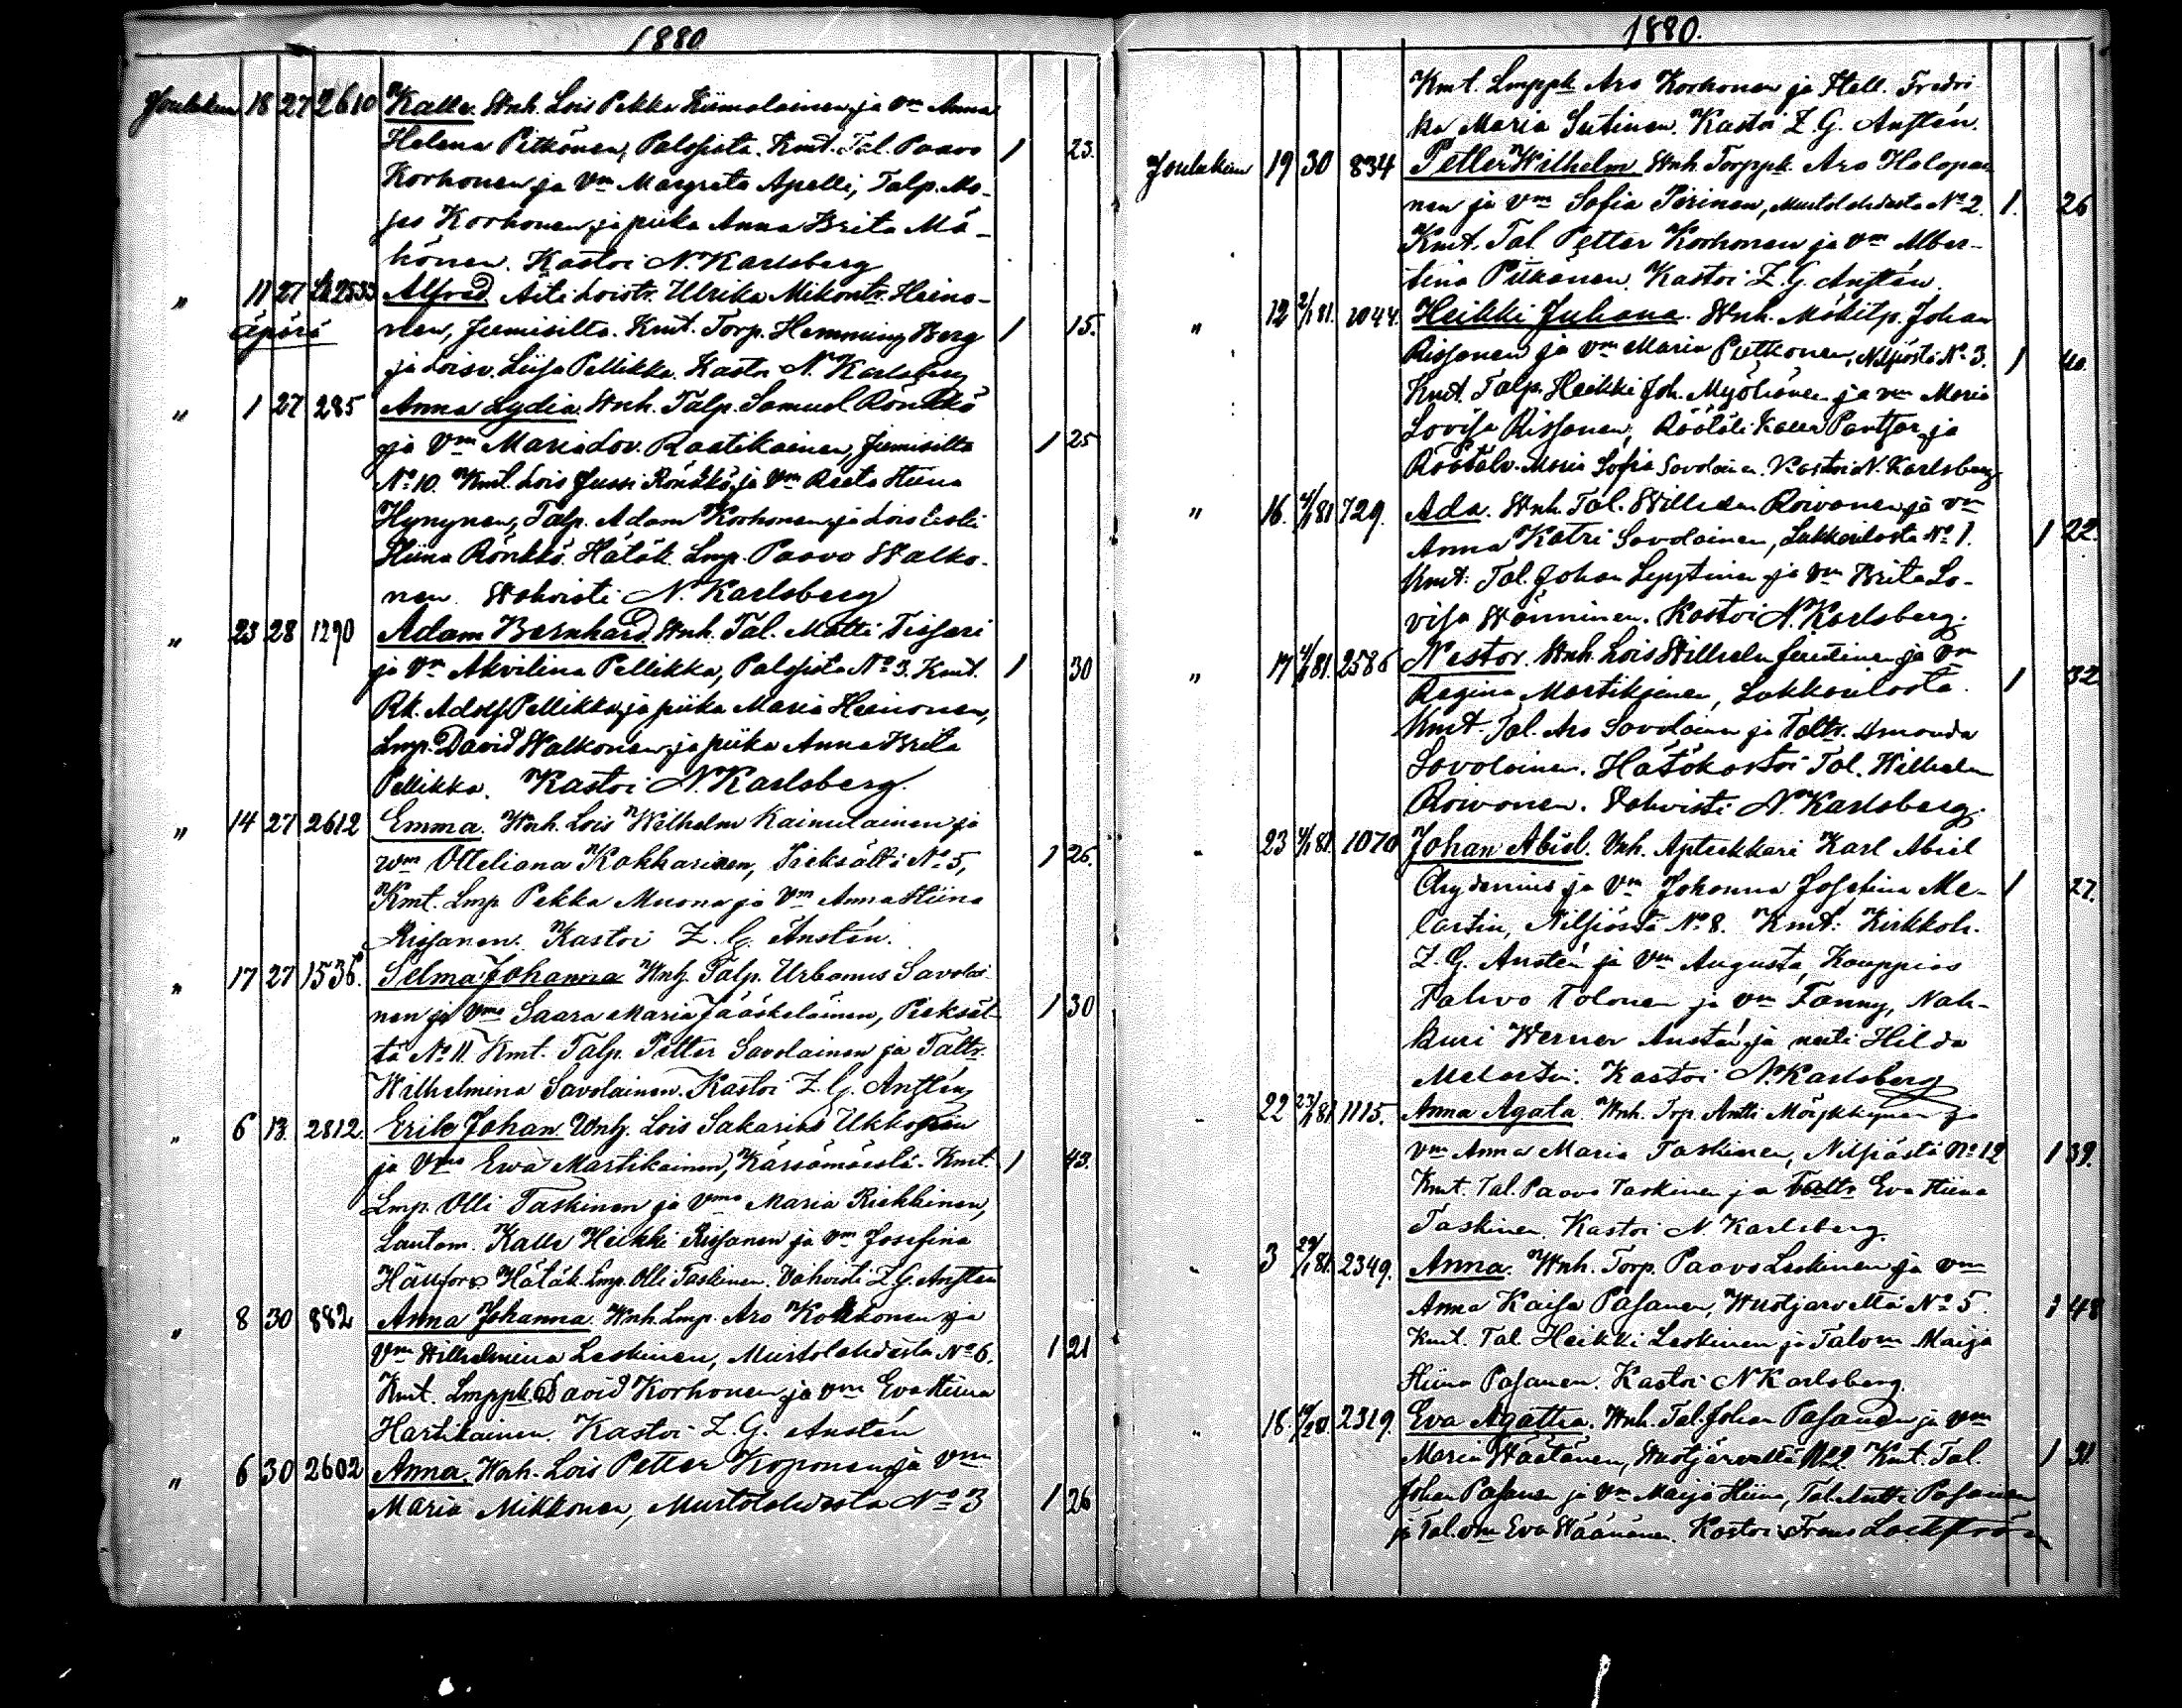 1880
Joulukuu 18 27 2610 Kalle. Wnh. Lois Pekka Kiimalainen ja vm Anna
Helena Pitkönen, Palosista. Kmt. Tal. Paavo 1 23.
Korhonen ja Vm Margreta Apelli, Talp. Mo-
ses Korhonen ja piika Anna Brita Mö-
hönen. Kastoi N. Karlsberg
" 11 27 2533 Alfred. Äiti Loistr. Ulrika Mikontr. Heino-
äpärä nen, Jumisilta. Kmt. Torp. Hemming Berg 1 15.
ja Loisv. Liisa Pellikka. Kastoi N. Karlsberg
" 1 27 285 Anna Lydia. Wnh. Talp. Samuel Rönkkö
ja Vm Maria Lov. Raatikainen, Jumisilta 1 25
No 10. Kmt. Lois Jussi Rönkkö ja Vm Reeta Stiina
Hynynen, Talp. Adam Korhonen ja Lois leski
Stiina Rönkkö. Hätäk. Lmp. Paavo Walko-
nen. Wahvisti N. Karlsberg
" 23 28 1290 Adam Bernhard. Wnh. Tal. Matti Tissari
ja Vm Akvilina Pellikka, Palosista No 3. Kmt. 1 30
Rk. Adolf Pellikka ja piika Maria Heinonen,
Lmp. David Walkonen ja piika Anna Brita
Pellikka. Kastoi N. Karlsberg.
" 14 27 2612 Emma. Wnh. Lois Wilhelm Kainulainen ja
wm Otteliana Kokkarinen, Pieksältä No 5, 1 26.
Kmt. Lmp. Pekka Muona ja Vm Anna Stiina
Rissanen. Kastoi Z. G. Anstén.
" 17 27 1536. Selma Johanna Wnh. Talp. Urbanus Savolai-
nen ja Vmo Saara Maria Jääskeläinen, Pieksäl- 1 30
tä No 11. Kmt. Talp. Petter Savolainen ja Taltr.
Wilhelmina Savolainen. Kastoi Z. G. Anstén
" 6 13. 2812. Erik Johan. Wnh. Lois Sakarias Ukkonen
ja Vmo Ewa Martikainen, Känsämäestä. Kmt. 1 43.
Lmp. Olli Taskinen ja Vmo Maria Riekkinen,
Lautam. Kalle Heikki Rissanen ja Vm Josefina
Hätäk. Lmp. Olli Taskinen. Vahvisti Z. G. Anstén
" 8 30 882 Anna Johanna. Wnh. Lmp. Aro Korhonen ja
Vm Wilhelmina Leskinen, Murtolahdesta No 6. 1 21
Kmt. Lmppk. David Korhonen ja vm Eva Stiina
Hartikainen. Kastoi Z. G. Anstén
" 6 30 2602 Anna. Wnh. Lois Petter Koponen ja Vm
Maria Mikkonen, Murtolahdesta No 3 1 26
1880.
Kmt. Lmppk Aro Korhonen ja Itell. Fredri-
ka Maria Sutinen. Kastoi Z. G. Anstén.
Joulukuu 19 30 834 Petter Wilhelm. Wnh. Torppk. Aro Holopai-
nen ja Vm Sofia Piirinen, Murtolahdesta No 2. 1. 26
Kmt. Tal. Petter Korhonen ja Vm Alber-
tina Pitkänen. Kastoi Z. G. Anstén.
" 12 2/1 81. 2044. Heikki Juhana. Wnh. Mökilp. Johan
Rissanen ja Vm Maria Putkonen, Nilsiästä No 3. 1 40.
Kmt. Talp. Heikki Joh. Myöhänen ja vm Maria
Lovisa Rissanen, Räätäli Kalle Pantsar ja
Räätälv. Maria Sofia Savolainen. Kastoi N. Karlsberg
" 16. 4/1 81 729. Ada. Wnh. Tal. Willehm Roivonen ja vm
Anna Katri Savolainen, Lukkarilasta No 1. 1 22.
Kmt: Tal. Johan Lyytinen ja Vm Brita Lo-
visa Wänninen. Kastoi N. Karlsberg.
" 17 4/1 81. 2586 Nestor. Wnh. Lois Wilhelm Juutinen ja Vm
Regina Martikainen, Lukkarilasta. 1 32
Kmt. Tal. Aro Savolainen ja Taltr. Amanda
Savolainen. Hätäkastoi Tal. Wilhelm
Roivonen. Vahvisti N. Karlsberg.
" 23 4/1 81. 1070 Johan Abiel. Vnh. Apteekkari Karl Abiel
Chydenius ja Vm Johanna Josefina Me- 1 27.
lartin, Nilsiästä No 8. Kmt: Kirkkoh.
Z. G. Anstén ja Vm Augusta, Kauppias
Tahvo Tolonen ja vm Fanny, Nah-
kuri Werner Anstén ja neiti Hilda
Melartin. Kastoi N. Karlsberg
" 22 23/1 81. 1115. Anna Agata. Wnh. Trp. Antti Mörkkynen ja
vm Anna Maria Taskinen, Nilsiästä No 12 1 39.
Kmt. Tal. Paavo Taskinen ja Taltr. Eva Stiina
Taskinen. Kastoi N. Karlsberg.
" 3 29/1 81. 2349. Anna. Wnh. Torp. Paavo Leskinen ja vm
Anna Kaisa Pasanen, Wuotjärveltä No 5. 1 48
Kmt. Tal. Heikki Leskinen ja Talvm Maija
Stiina Pasanen. Kastoi N Karlsberg.
" 18. 2319. Eva Agatha. Wnh. Tal. Johan Pasanen ja vm
Maria Wäätänen, Wuotjärveltä No 2. Kmt. Tal. 1 31
Johan Pasanen ja Vm Maija Stiina, Tal. Antti Pasanen
ja Tal. vm Eva Wäänänen. Kastoi Frans Lackström